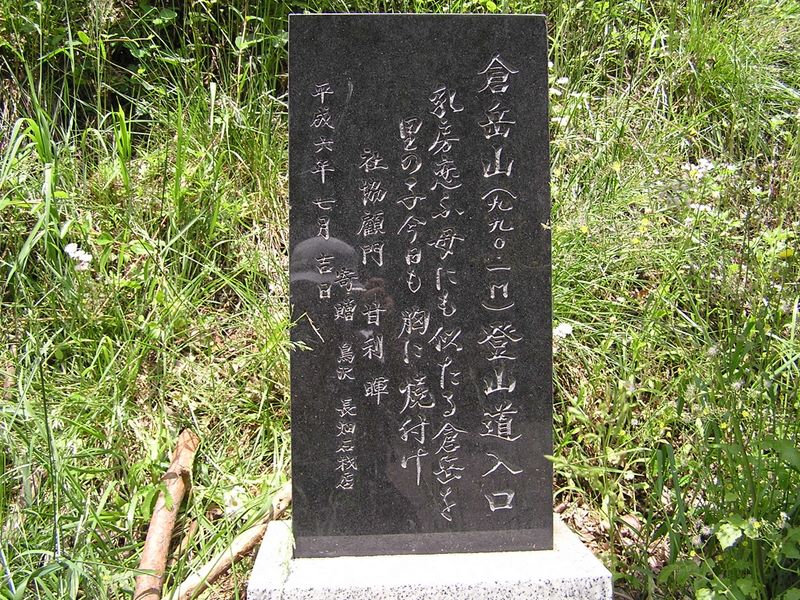 倉岳山(九九〇.一M)登山道入口
乳房恋ふ母にも似たる倉岳を
里の子今日も胸に焼付け
社協顧問 甘利暉
寄贈 鳥沢 長畑石材店
平成六年七月吉日